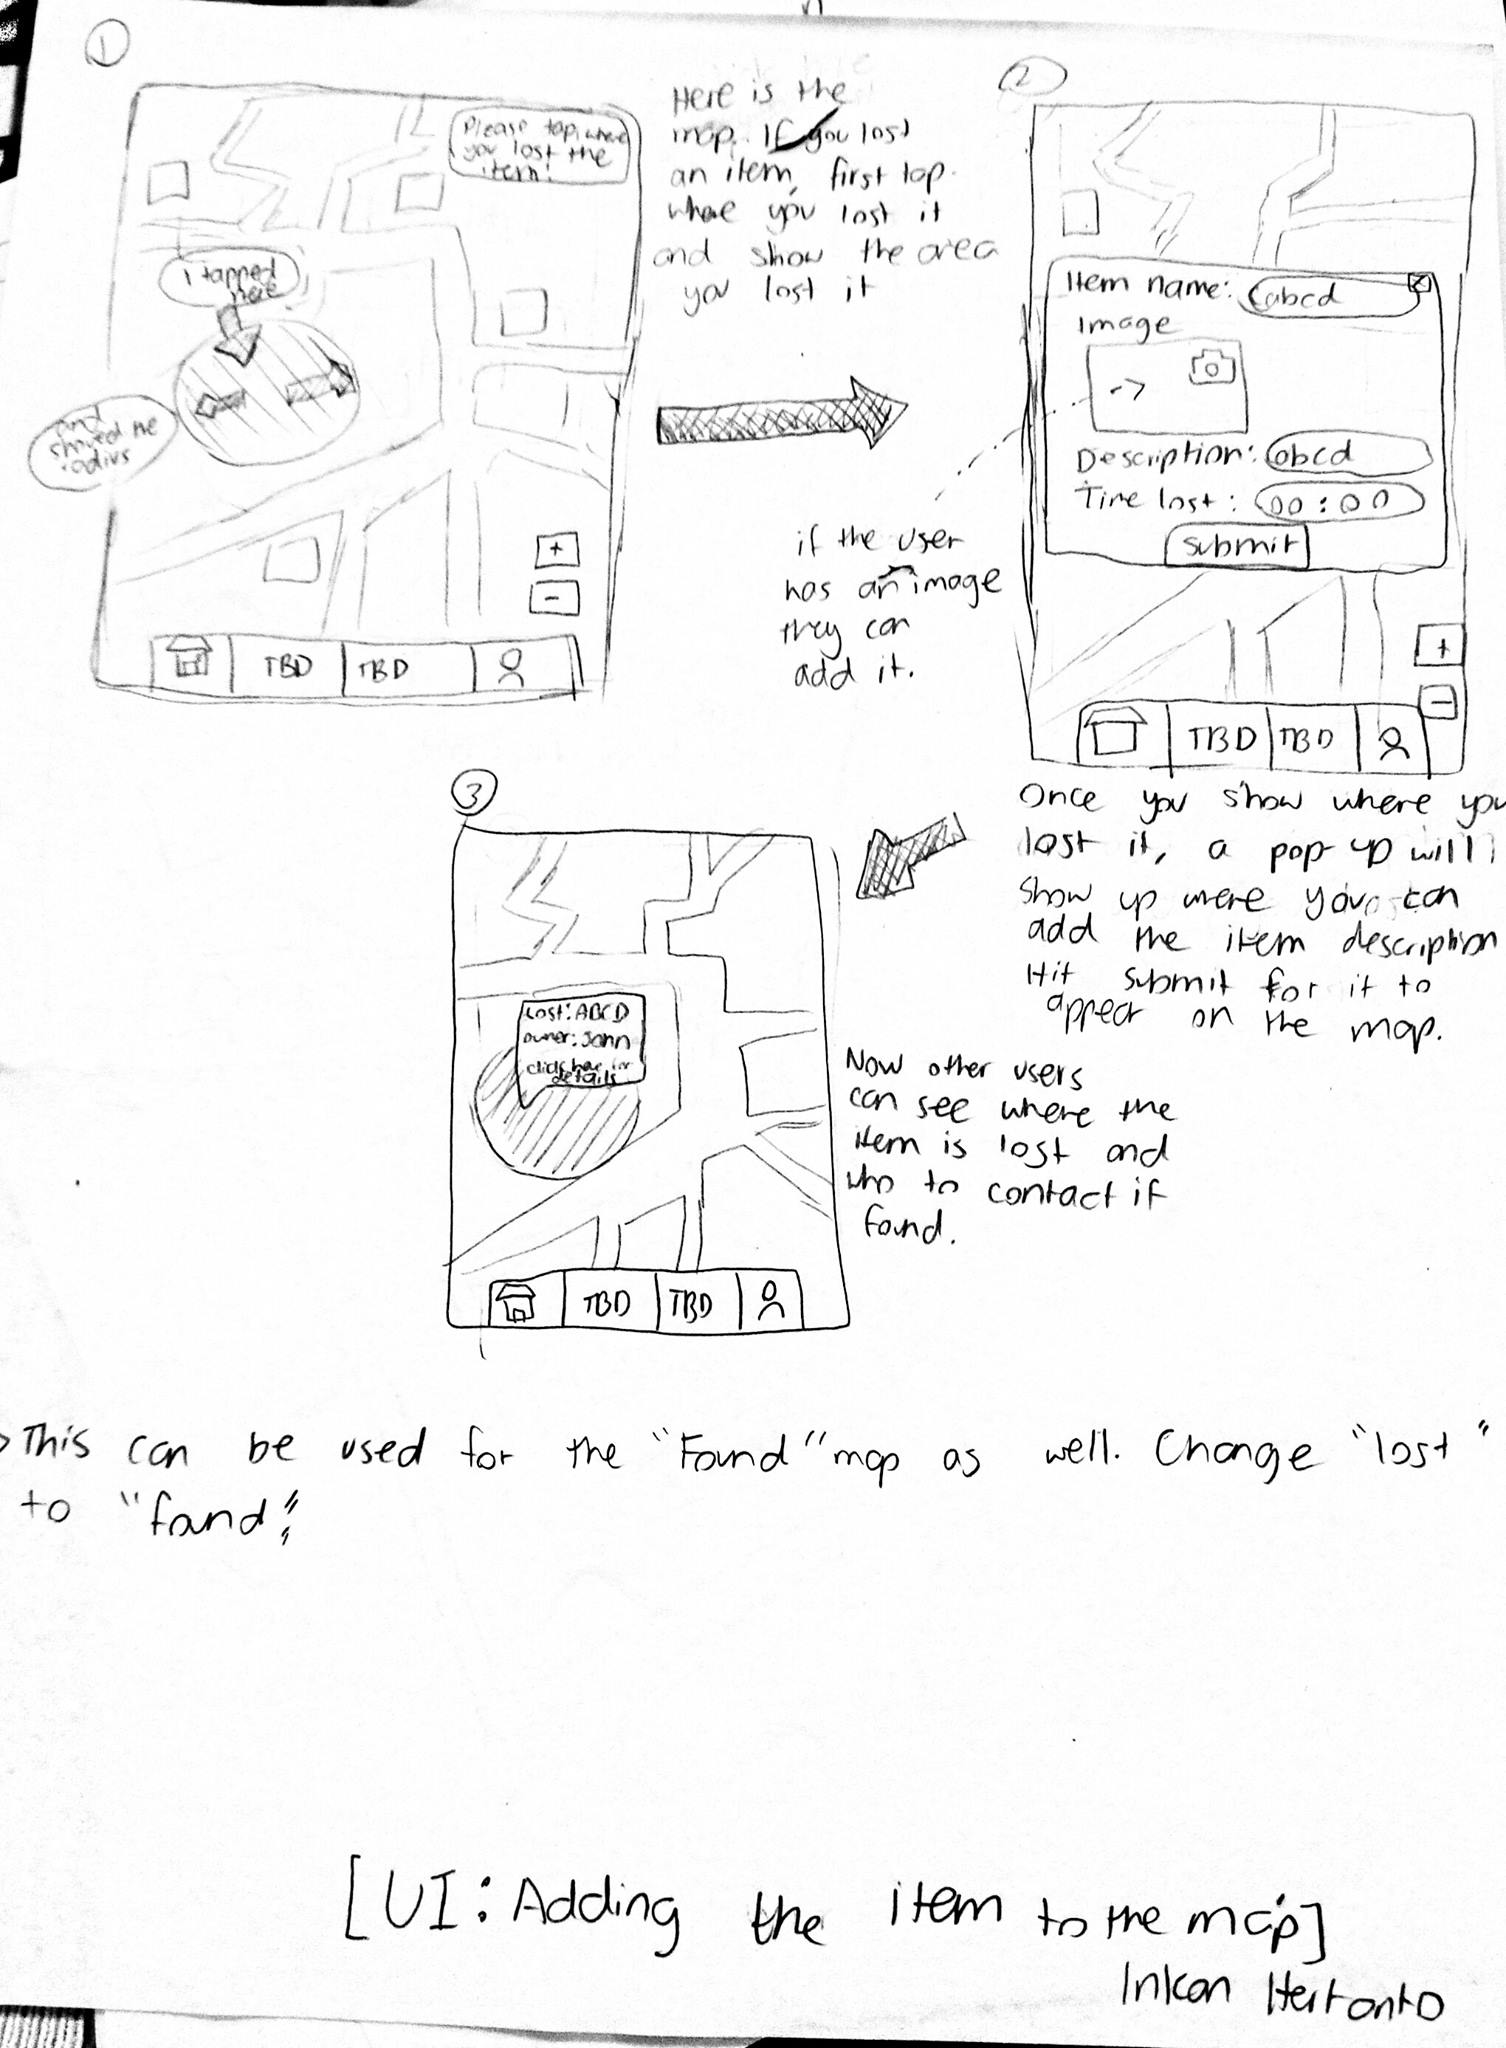 1
Please tap where
you lost the
item!
I tapped
here
and
showed the
radius
+
-
TBD
TBD
Here is the
map. If you lost
an item, first tap
where you lost it
and show the area
you lost it
2
Item name: abcd
X
Image
Description: abcd
Time lost: 00:00
Submit
+
-
TBD
TBD
if the user
has an image
they can
add it.
Once you show where you
lost it, a pop-up will
show up where you can
add the item description
Hit submit for it to
appear on the map.
3
Lost: ABCD
owner: John
click here for
details
TBD
TBD
Now other users
can see where the
item is lost and
who to contact if
found.
This can be used for the "Found" map as well. Change "lost"
to "found".
[UI: Adding the item to the map]
Inkan Hertanto